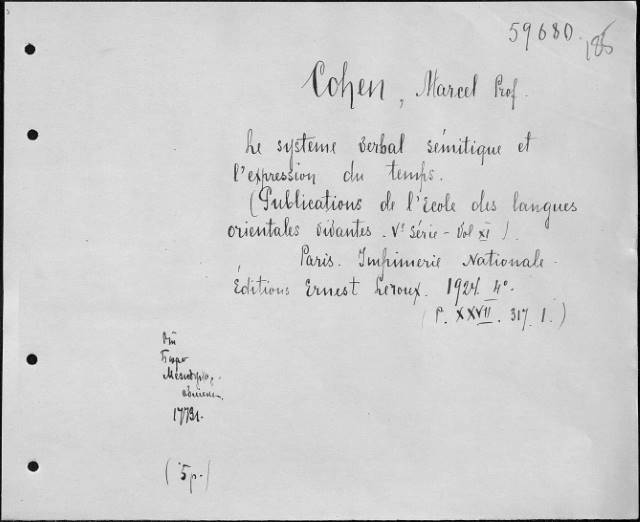 59680.
186
Cohen, Marcel Prof.
Le systeme verbal sémitique et
l'expression du temps.
(Publications de l'école des langues
orientales vivantes. Ve Série - Vol XI).
Paris. Imprimerie Nationale.
Éditions Ernest Leroux. 1924. 4°.
(P. XXVII. 317. 1.)
Бюро
(5р.)